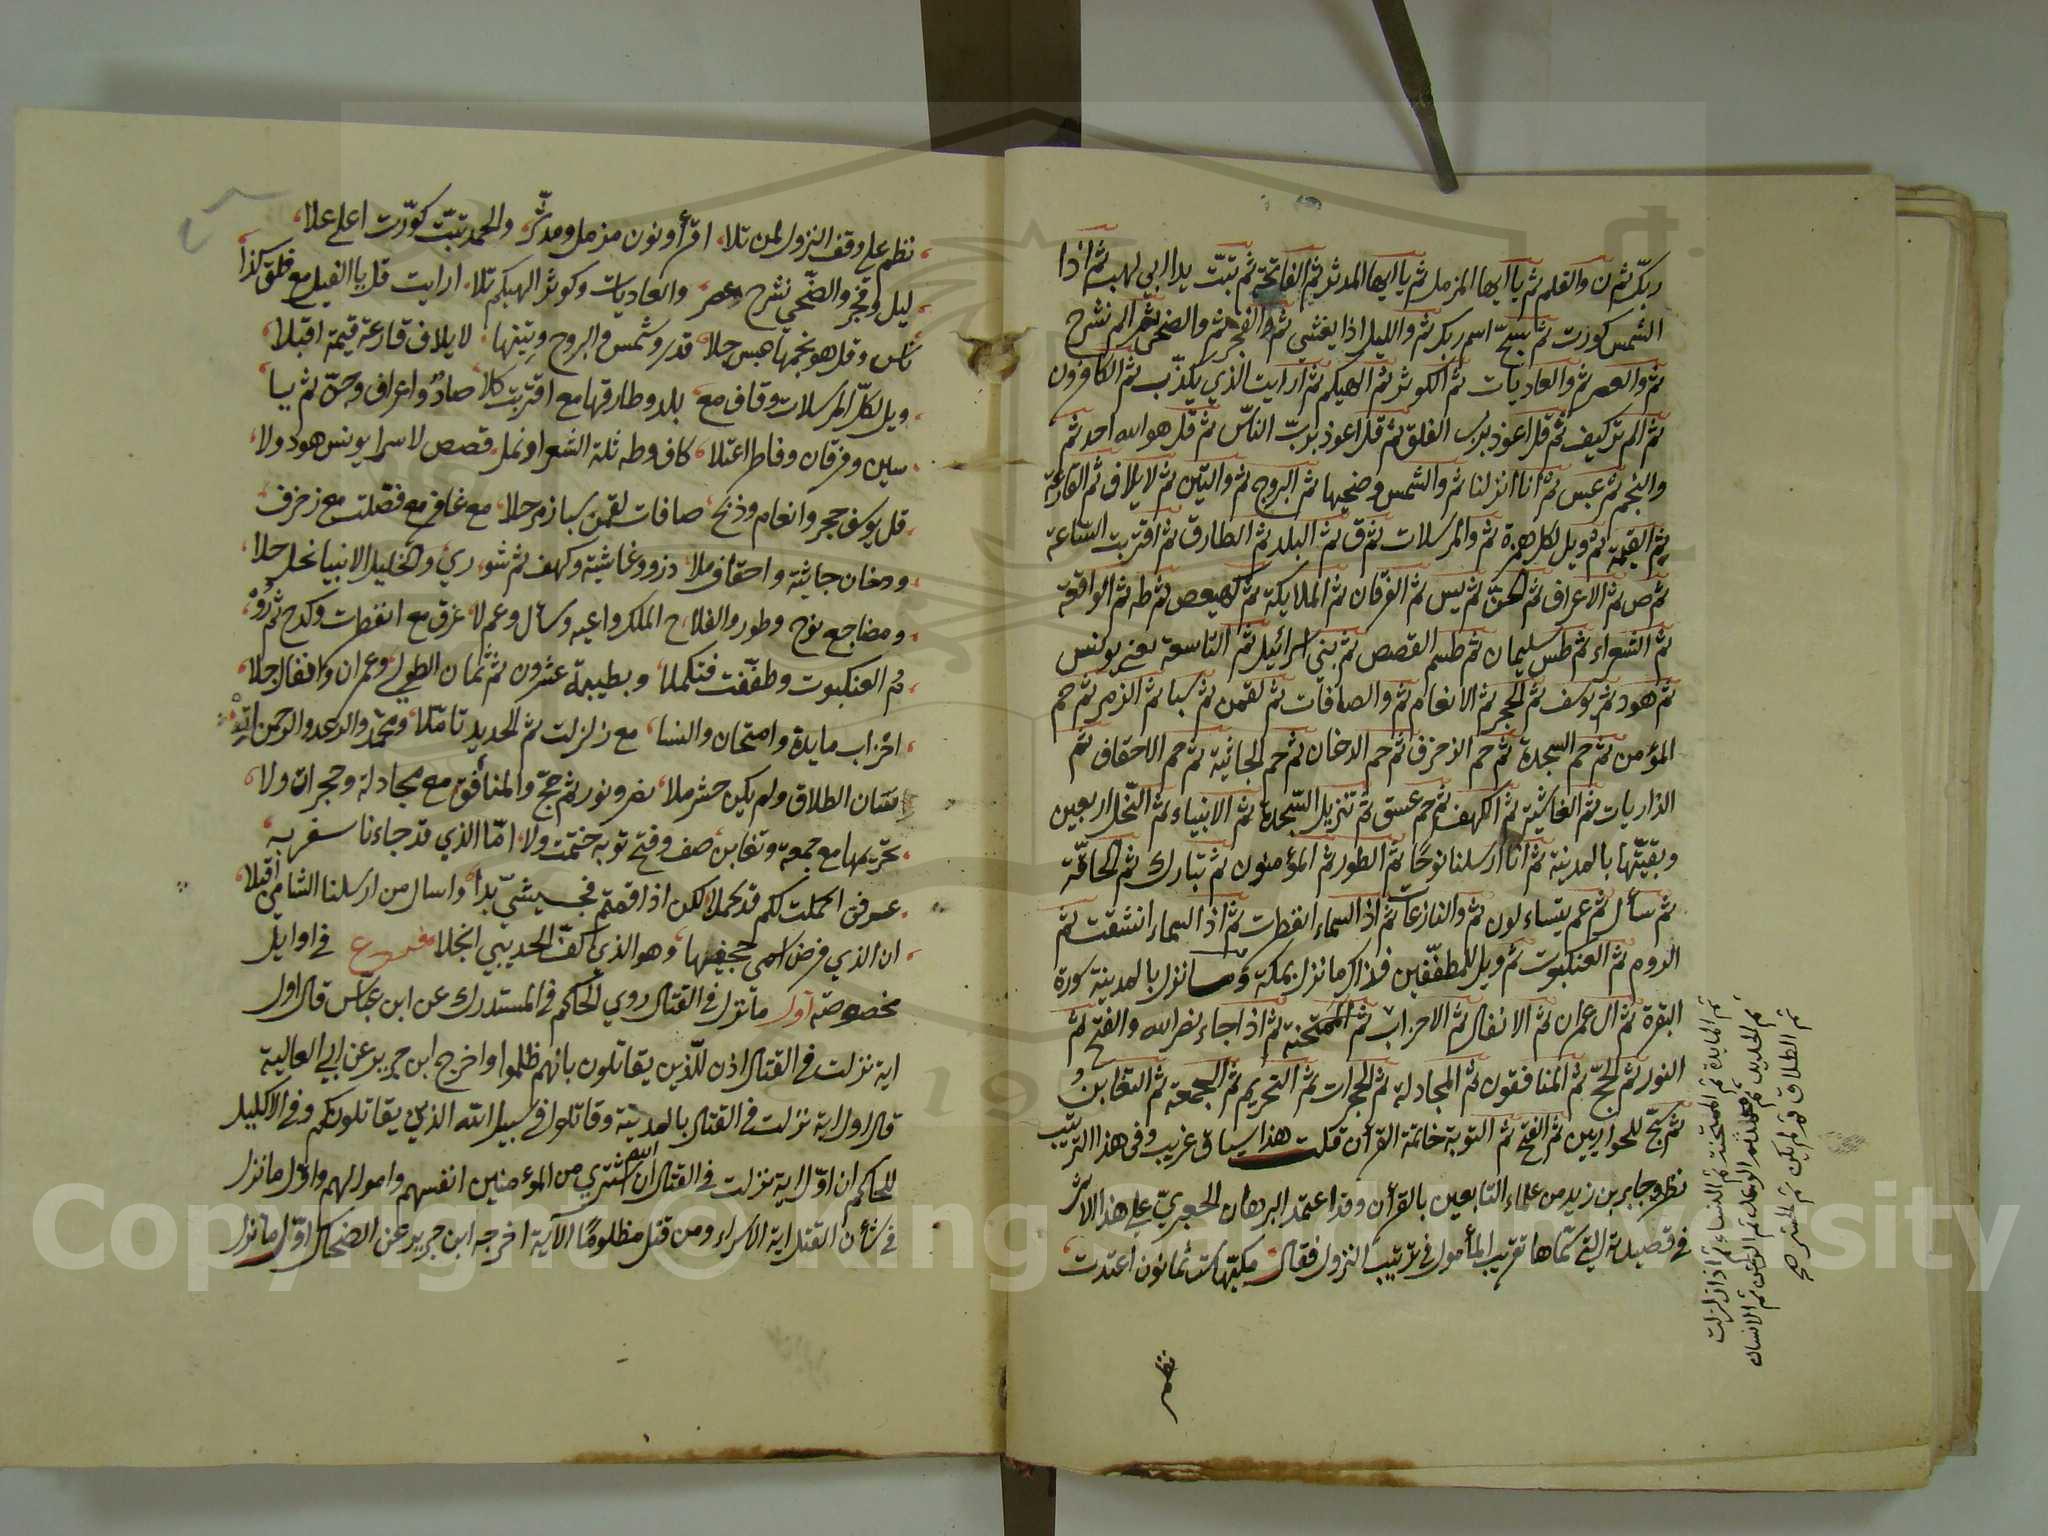 ربك ثم ن والقلم ثم يا ايها المزمل ثم يا ايها المدثر ثم الفاتحة ثم تبت يدا ابي لهب ثم اذا
الشمس كورت ثم سبح اسم ربك ثم والليل اذا يغشى ثم والفجر ثم والضحى ثم الم نشرح
ثم والعصر ثم والعاديات ثم الكوثر ثم الهيكم ثم ارايت الذي يكذب ثم الكافرون
ثم الم تر كيف ثم قل اعوذ برب الفلق ثم قل اعوذ برب الناس ثم قل هو الله احد ثم
والنجم ثم عبس ثم انا انزلنا ثم والشمس وضحيها ثم البروج ثم والتين ثم لايلاف ثم القارعة
ثم القيمة ثم ويل لكل همزة ثم والمرسلات ثم ق ثم البلد ثم الطارق ثم اقتربت الساعة
ثم ص ثم الاعراف ثم الجن ثم يس ثم الفرقان ثم الملايكة ثم كهيعص ثم طه ثم الواقعة
ثم الشعراء ثم طس سليمان ثم طسم القصص ثم بني اسرائيل ثم التاسعة يعني يونس
ثم هود ثم يوسف ثم الحجر ثم الانعام ثم والصافات ثم لقمن ثم سبا ثم الزمر ثم حم
المؤمن ثم حم السجدة ثم حم الزخرف ثم حم الدخان ثم حم الجاثية ثم حم الاحقاف ثم
الذاريات ثم الغاشية ثم الكهف ثم حم عسق ثم تنزيل السجدة ثم الانبياء ثم النحل اربعين
وبقيتها بالمدينة ثم انا ارسلنا نوحا ثم الطور ثم المؤمنون ثم تبارك ثم الحاقة
ثم سأل ثم عم يتساءلون ثم والنازعات ثم اذا السماء انفطرت ثم اذا السماء انشقت ثم
الروم ثم العنكبوت ثم ويل للمطففين فذاك ما نزل بمكة وما نزل بالمدينة سورة
البقرة ثم ال عمران ثم الانفال ثم الاحزاب ثم الممتحنة ثم اذا جاء نصر الله والفتح ثم
النور ثم الحج ثم المنافقون ثم المجادلة ثم الحجرات ثم التحريم ثم الجمعة ثم التغابن و
ثم سبح للحواريين ثم الفتح ثم التوبة خاتمة القرآن قلت هذا سياق غريب وفي هذا الترتيب
نظر وجابر بن زيد من علماء التابعين بالقرآن وقد اعتمد البرهان الجعبري على هذا الاثر
في قصيدته التي سماها تقريب المأمول في ترتيب النزول فقال مكيها ست ثمانون اعتدت
ثم المايدة ثم الممتحنة ثم النساء ثم اذا زلزلت
ثم الحديد ثم ثم الرعد ثم الرحمن ثم الانسان
ثم الطلاق ثم لم يكن ثم الحشر صح
نظم
نظم على وقف النزول لمن تلا اقرأ ونون مزمل ومدثر والحمد تبت كورت اعلى علا
ليل وفجر والضحى نشرح وعصر والعاديات وكوثر الهيكم تلا ارايت قل يا الفيل مع فلق كذا
ناس وقل هو نجمها عبس جلا قدر وشمس والبروج وتينها لايلاف قارعة قيمة اقبلا
ويل لكل المرسلات وقاف مع بلد وطارقها مع اقتربت كلا صاد واعراف وجن ثم يا
سين وفرقان وفاطر اعتلا كاف وطه ثلة الشعرا ونمل قصص لاسرا يونس هود ولا
قل يوسف حجر وانعام وذبح صافات لقمن سبا زمر جلا مع غافر مع فصلت مع زخرف
ودخان جاثية واحقاف ملا ذرو وغاشية وكهف ثم شورى والخليل الانبيا نحل حلا
ومضاجع نوح وطور والفلاح الملك واعيه وسأل وعم لا غرق مع انفطرت وكدح ثم رو
م العنكبوت وطففت فتكملا وبطيبة عشرون ثم ثمان الطولى وعمران وانفال جلا
احزاب مايدة وامتحان والنسا مع زلزلت ثم الحديد تاملا ومحمد والرعد والرحمن
نسان الطلاق ولم يكن حشر ملا نصر ونور ثم حج والمنافق مع مجادلة وحجرات ولا
تحريمها مع جمعة وتغابن صف وفتح توبة ختمت ولا اما الذي قد جاءنا سفريه
عرفي اكملت لكم قد كملا لكن اذا قمتم فجيشي بدا واسال من ارسلنا الشامي اقبلا
ان الذي فرض انتمى جحفيها وهو الذي كف الحديبي انجلا فرع في اوايل
مخصوصة اول ما نزل في القتال روي الحاكم في المستدرك عن ابن عباس قال اول
اية نزلت في القتال اذن للذين يقاتلون بانهم ظلموا واخرج ابن جرير عن ابي العالية
قال اول اية نزلت في القتال بالمدينة وقاتلوا في سبيل الله الذين يقاتلونكم وفي الاكليل
للحاكم ان اول اية نزلت في القتال ان الله اشترى من المؤمنين انفسهم واموالهم واول ما نزل
في شأن القتل اية الاسراء ومن قتل مظلوما الآية اخرجه ابن جرير عن الضحاك اول ما نزل
Copyright © King Saud University